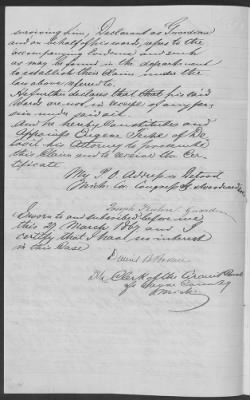 surviving him, Declarant as Guardian
and on behalf of his ward, refers to the
accompanying Evidence and such
as may be found in the department
to establish their Claim under the
law above referred to
He further declares that that his said
Wards are not in receipt of any pen
sion under said act
And he hereby Constitutes and
Appoints Eugene Fechet of De
troit his Attorney to prosecute
this Claim and to receive the Cer
tificate
My P. O. Address is Detroit
Mich.
Joseph Guardian
Sworn to and subscribed before me
this 27 March 1867 and I
certify that I have no interest
in this Case
The Clerk of the Circuit Court
of Wayne County
Mich